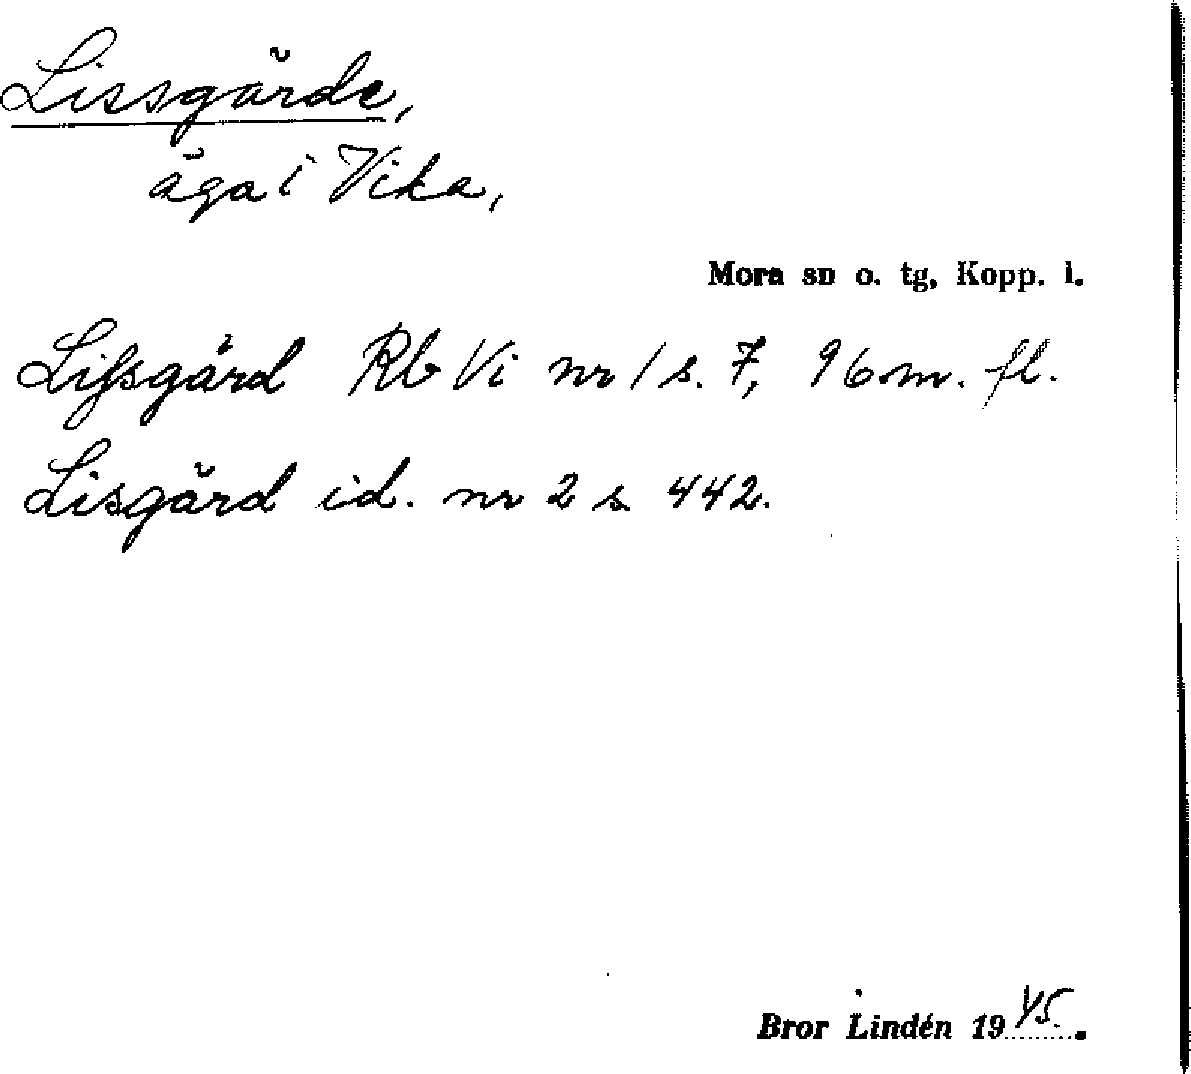 Lissgärde,
äga i Vika,
Mora sn o. tg, Kopp. l.
Lissgård Rb Vi nr 1 s. 7, 96 m. fl.
Lisgärd id. nr 2 s 442.
Bror Lindén 1945.